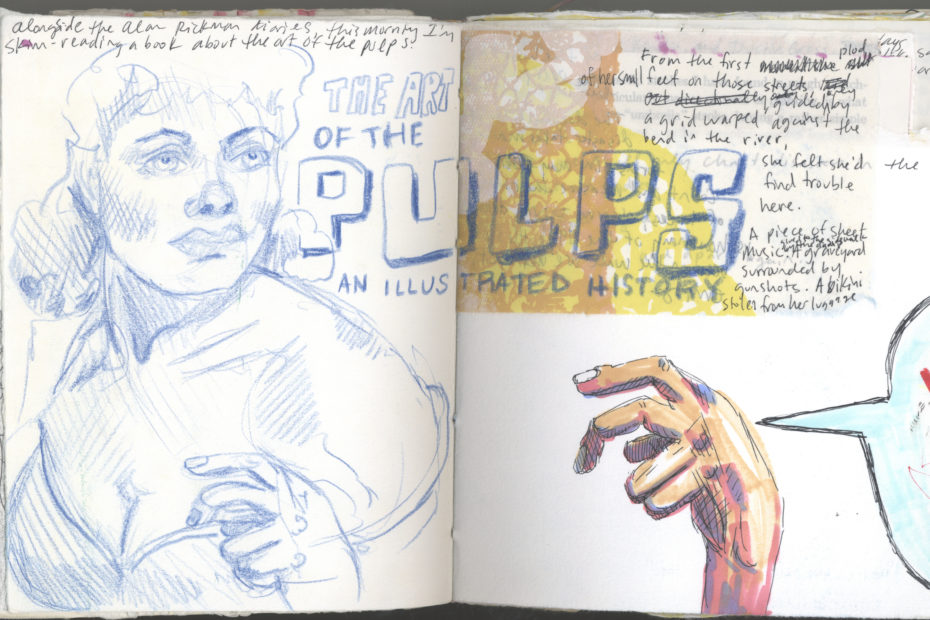 alongside the Alan Rickman diaries, this morning I'm
skim-reading a book about the art of the pulps.
THE ART
OF THE
PULPS
AN ILLUSTRATED HISTORY
From the first plod
of her small feet on those streets
guided by
a grid warped against the
bend in the river,
she felt she'd
find trouble
here.
A piece of sheet
music. A graveyard
surrounded by
gunshots. A bikini
stolen from her luggage
the